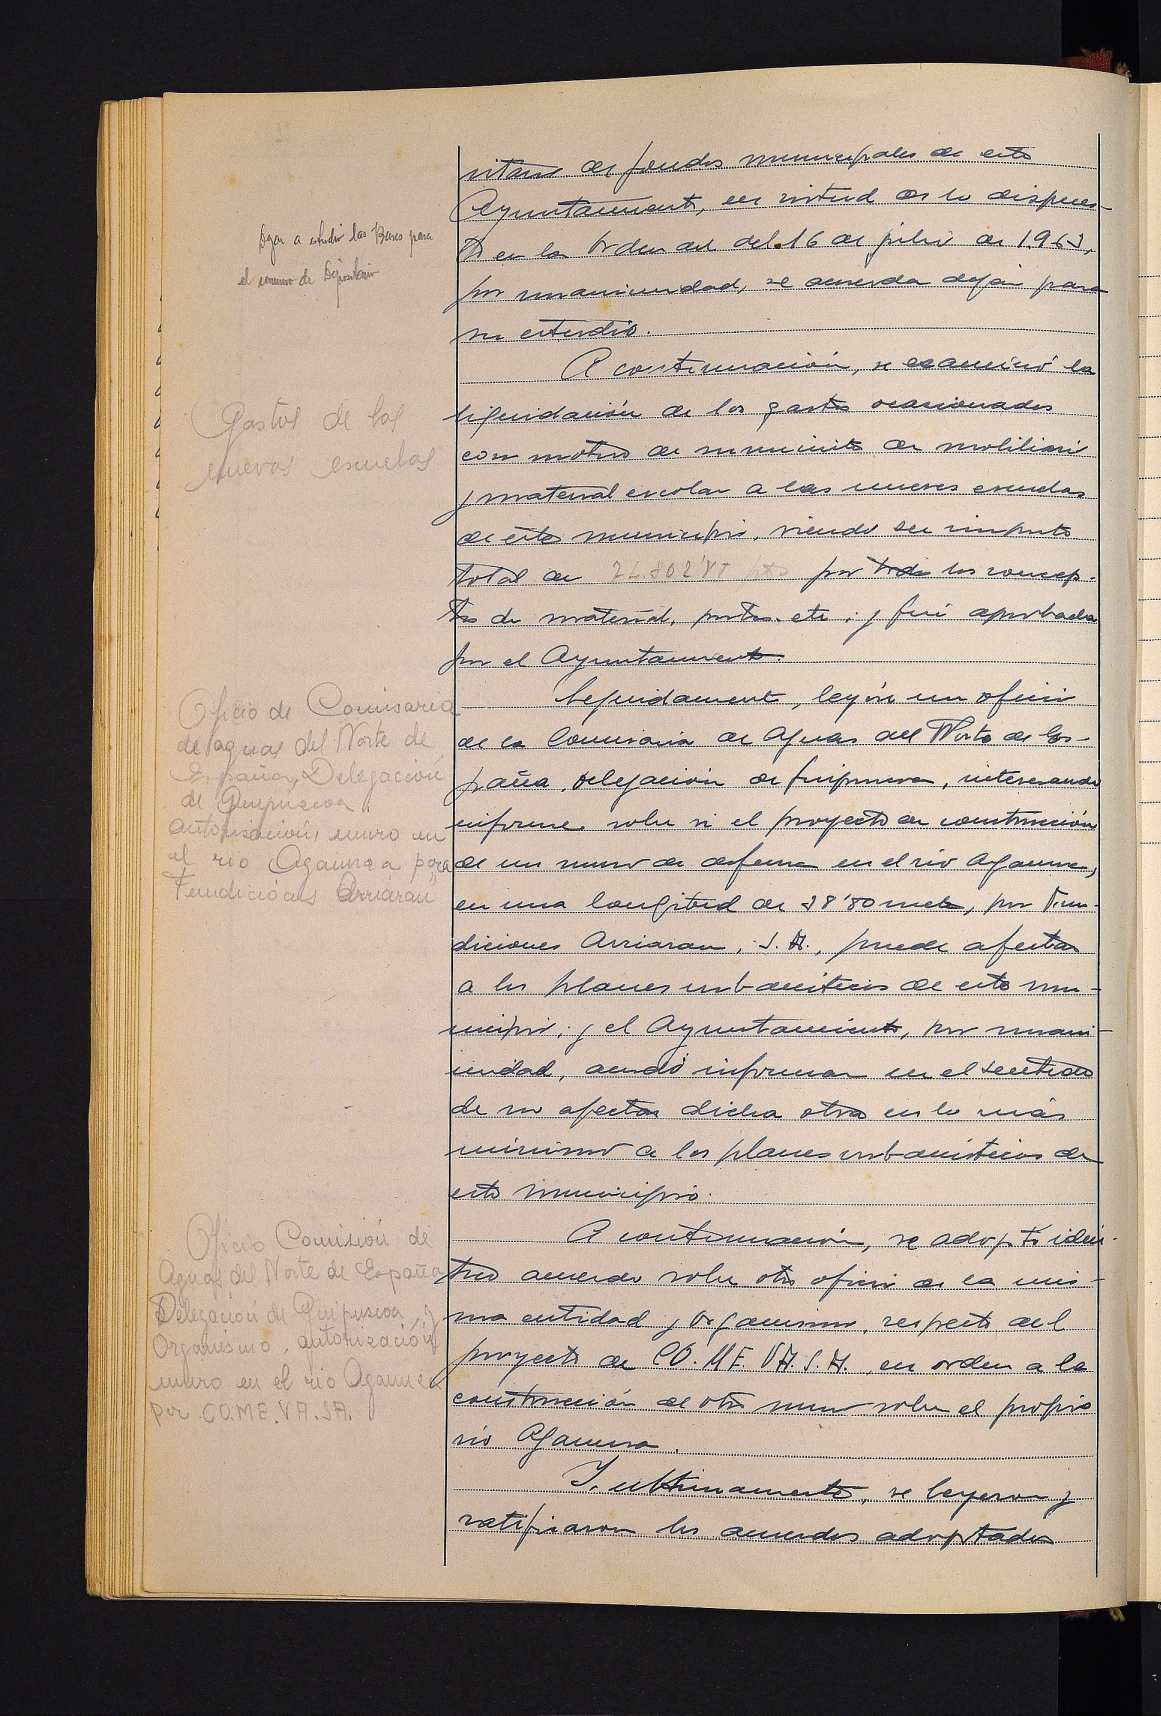 sitario de fondos municipales de este
Ayuntamiento, en virtud de lo dispues-
to en la Orden del 16 de julio de 1963,
por unanimidad, se acuerda dejar para
su estudio.
Dejar a estudio las Bases para
el concurso de Depositario
A continuación, se examinó la
liquidación de los gastos ocasionados
con motivo de suministro de mobiliario
y material escolar a las nuevas escuelas
de este municipio, siendo su importe
total de pts por todos los concep-
tos de material, portes etc; y fué aprobada
por el Ayuntamiento.
Gastos de las
nuevas escuelas
Seguidamente, leyóse un oficio
de la Comisaria de Aguas del Norte de Es-
paña, delegación de Guipuzcoa, interesando
informe sobre si el proyecto de construcción
de un muro de defensa en el rio Agauna,
en una longitud de 38'80 mets, por Fun-
diciones Arriaran, S.A., puede afectar
a los planes urbanísticos de este mu-
nicipio; y el Ayuntamiento, por unani-
midad, acordó informar en el sentido
de no afectar dicha obra en lo más
mínimo a los planes urbanísticos de
este municipio.
Oficio de Comisaria
de aguas del Norte de
España, Delegación
de Guipuscoa,
autorización, muro en
el rio Agaunza para
Fundiciónes Arriarán
A continuación, se adoptó idén-
tico acuerdo sobre otro oficio de la mis-
ma entidad y Organismo, respecto del
proyecto de CO.ME.VA.S.A., en orden a la
construcción de otro muro sobre el propio
rio Agaunza.
Oficio Comisión de
Aguas del Norte de España
Delegación de Guipuscoa, y
Organismo, autorización
muro en el rio Agaunza
por CO.ME.VA.SA.
Y, ultimamente, se leyeron y
ratificaron los acuerdos adoptados